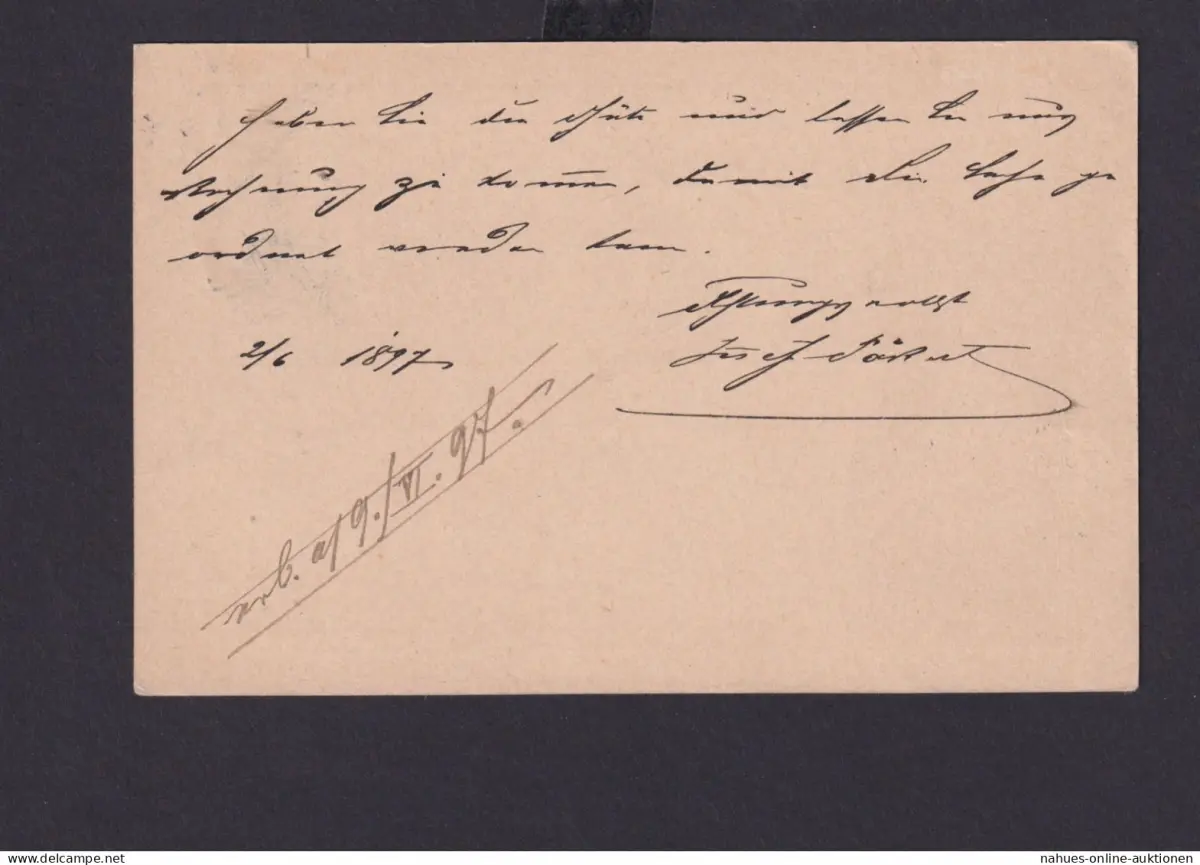 Haben Sie die Güte und lassen Sie mir
Rechnung zu kommen, damit die Sache ge
ordnet werden kann.
Achtungsvollst
Josef
2/6 1897
9./VI. 97.
nahues-online-auktionen